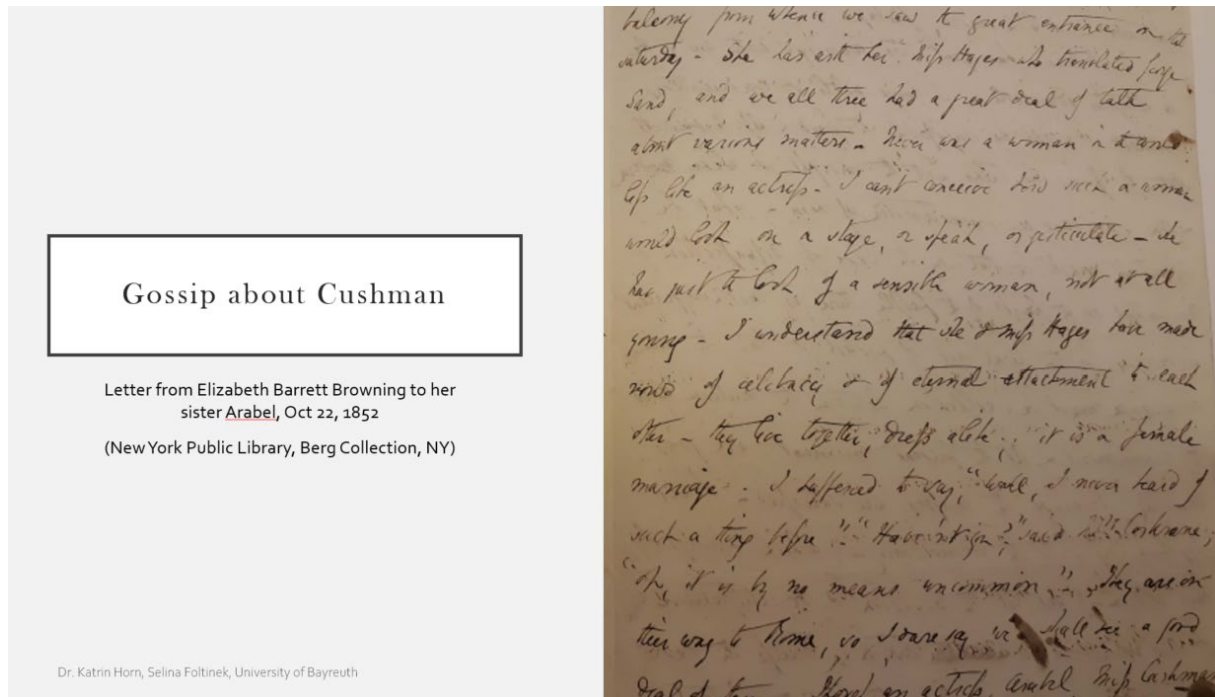 Gossip about Cushman
Letter from Elizabeth Barrett Browning to her
sister Arabel, Oct 22, 1852
(New York Public Library, Berg Collection, NY)
Dr. Katrin Horn, Selina Foltinek, University of Bayreuth
balcony from whence we saw the great entrance on the
saturday - She has with her Miss Hayes who translated George
Sand, and we all three had a great deal of talk
about various matters - Never was a woman in
less like an actress - I can't conceive how such a woman
would look on a stage, or speak, or gesticulate - she
has just the look of a sensible woman, not at all
young - I understand that she & Miss Hayes have made
vows of celibacy & of eternal attachment to each
other - they live together, dress alike,; it is a female
marriage - I happened to say, "Well, I never heard of
such a thing before". "Haven't you?" said Cochrane,
"oh, it is by no means uncommon". They are on
their way to Rome, so I dare say we shall see a good
deal of them - an actress, Arabel Miss Cushman